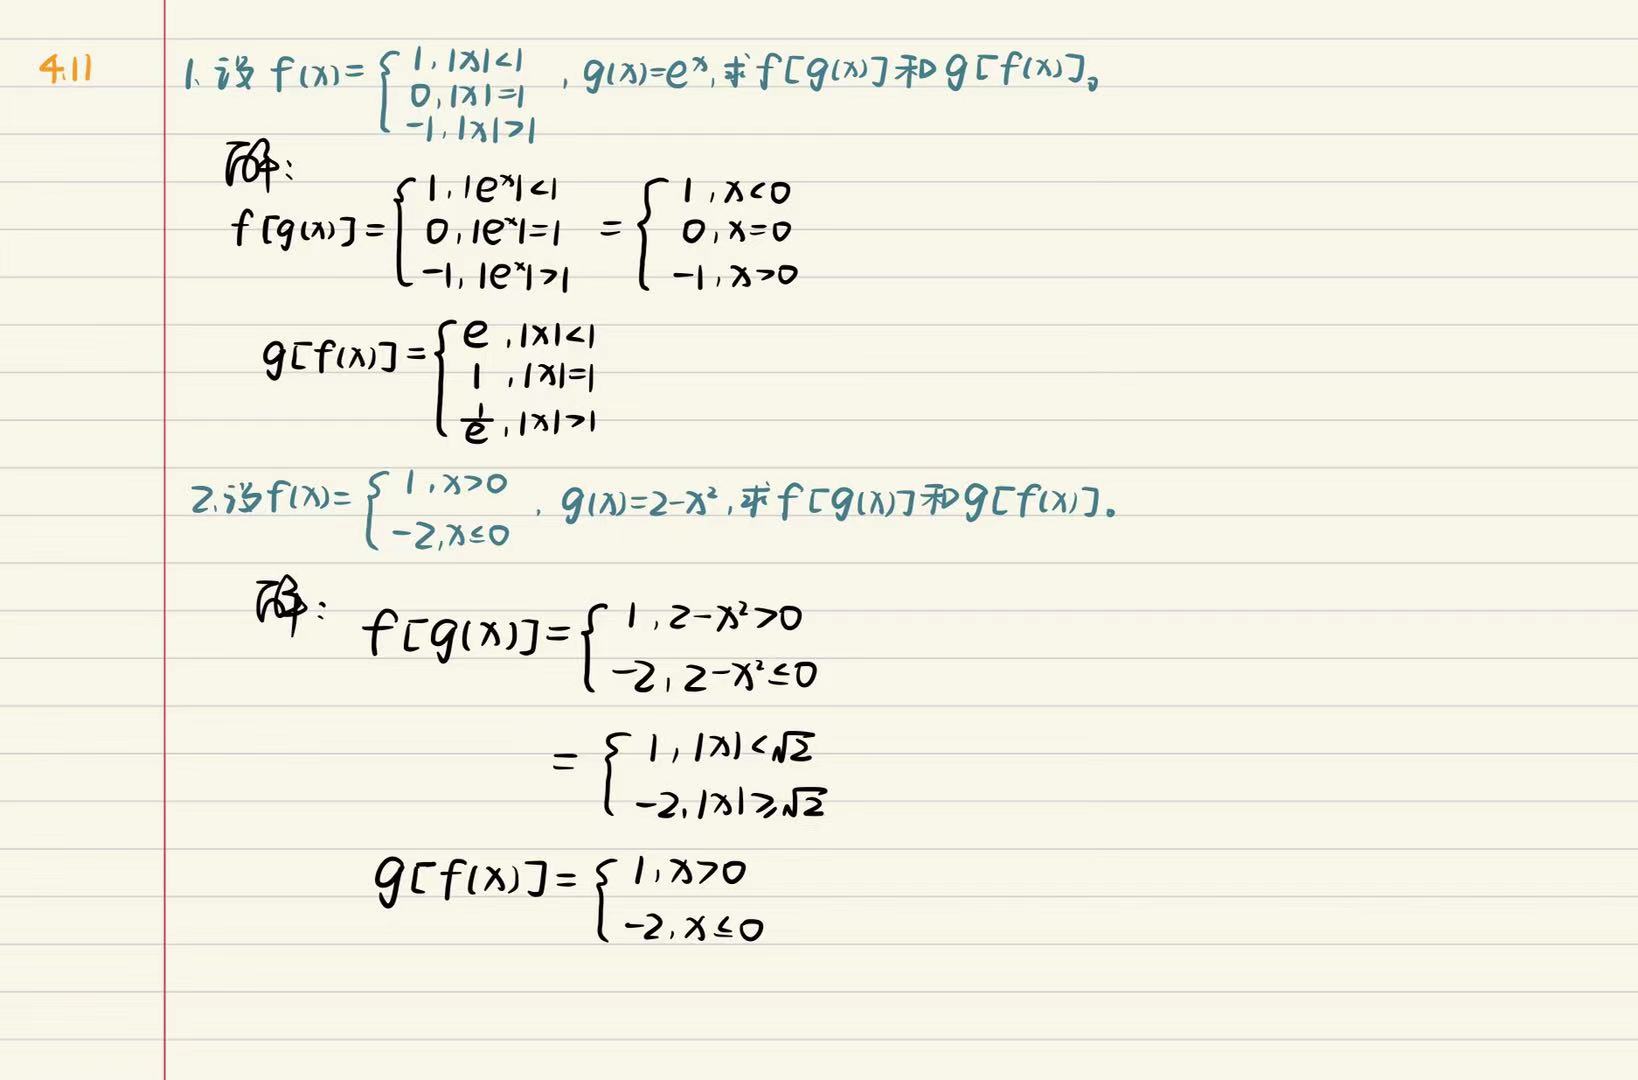 4.11
1. 设 f(x)={1, |x|<1
0, |x|=1
-1, |x|>1
, g(x)=eˣ, 求 f[g(x)] 和 g[f(x)]。
解:
f[g(x)]={1, |eˣ|<1
0, |eˣ|=1
-1, |eˣ|>1
={1, x<0
0, x=0
-1, x>0
g[f(x)]={e, |x|<1
1, |x|=1
1/e, |x|>1
2. 设 f(x)={1, x>0
-2, x≤0
, g(x)=2-x², 求 f[g(x)] 和 g[f(x)]。
解:
f[g(x)]={1, 2-x²>0
-2, 2-x²≤0
={1, |x|<√2
-2, |x|≥√2
g[f(x)]={1, x>0
-2, x≤0